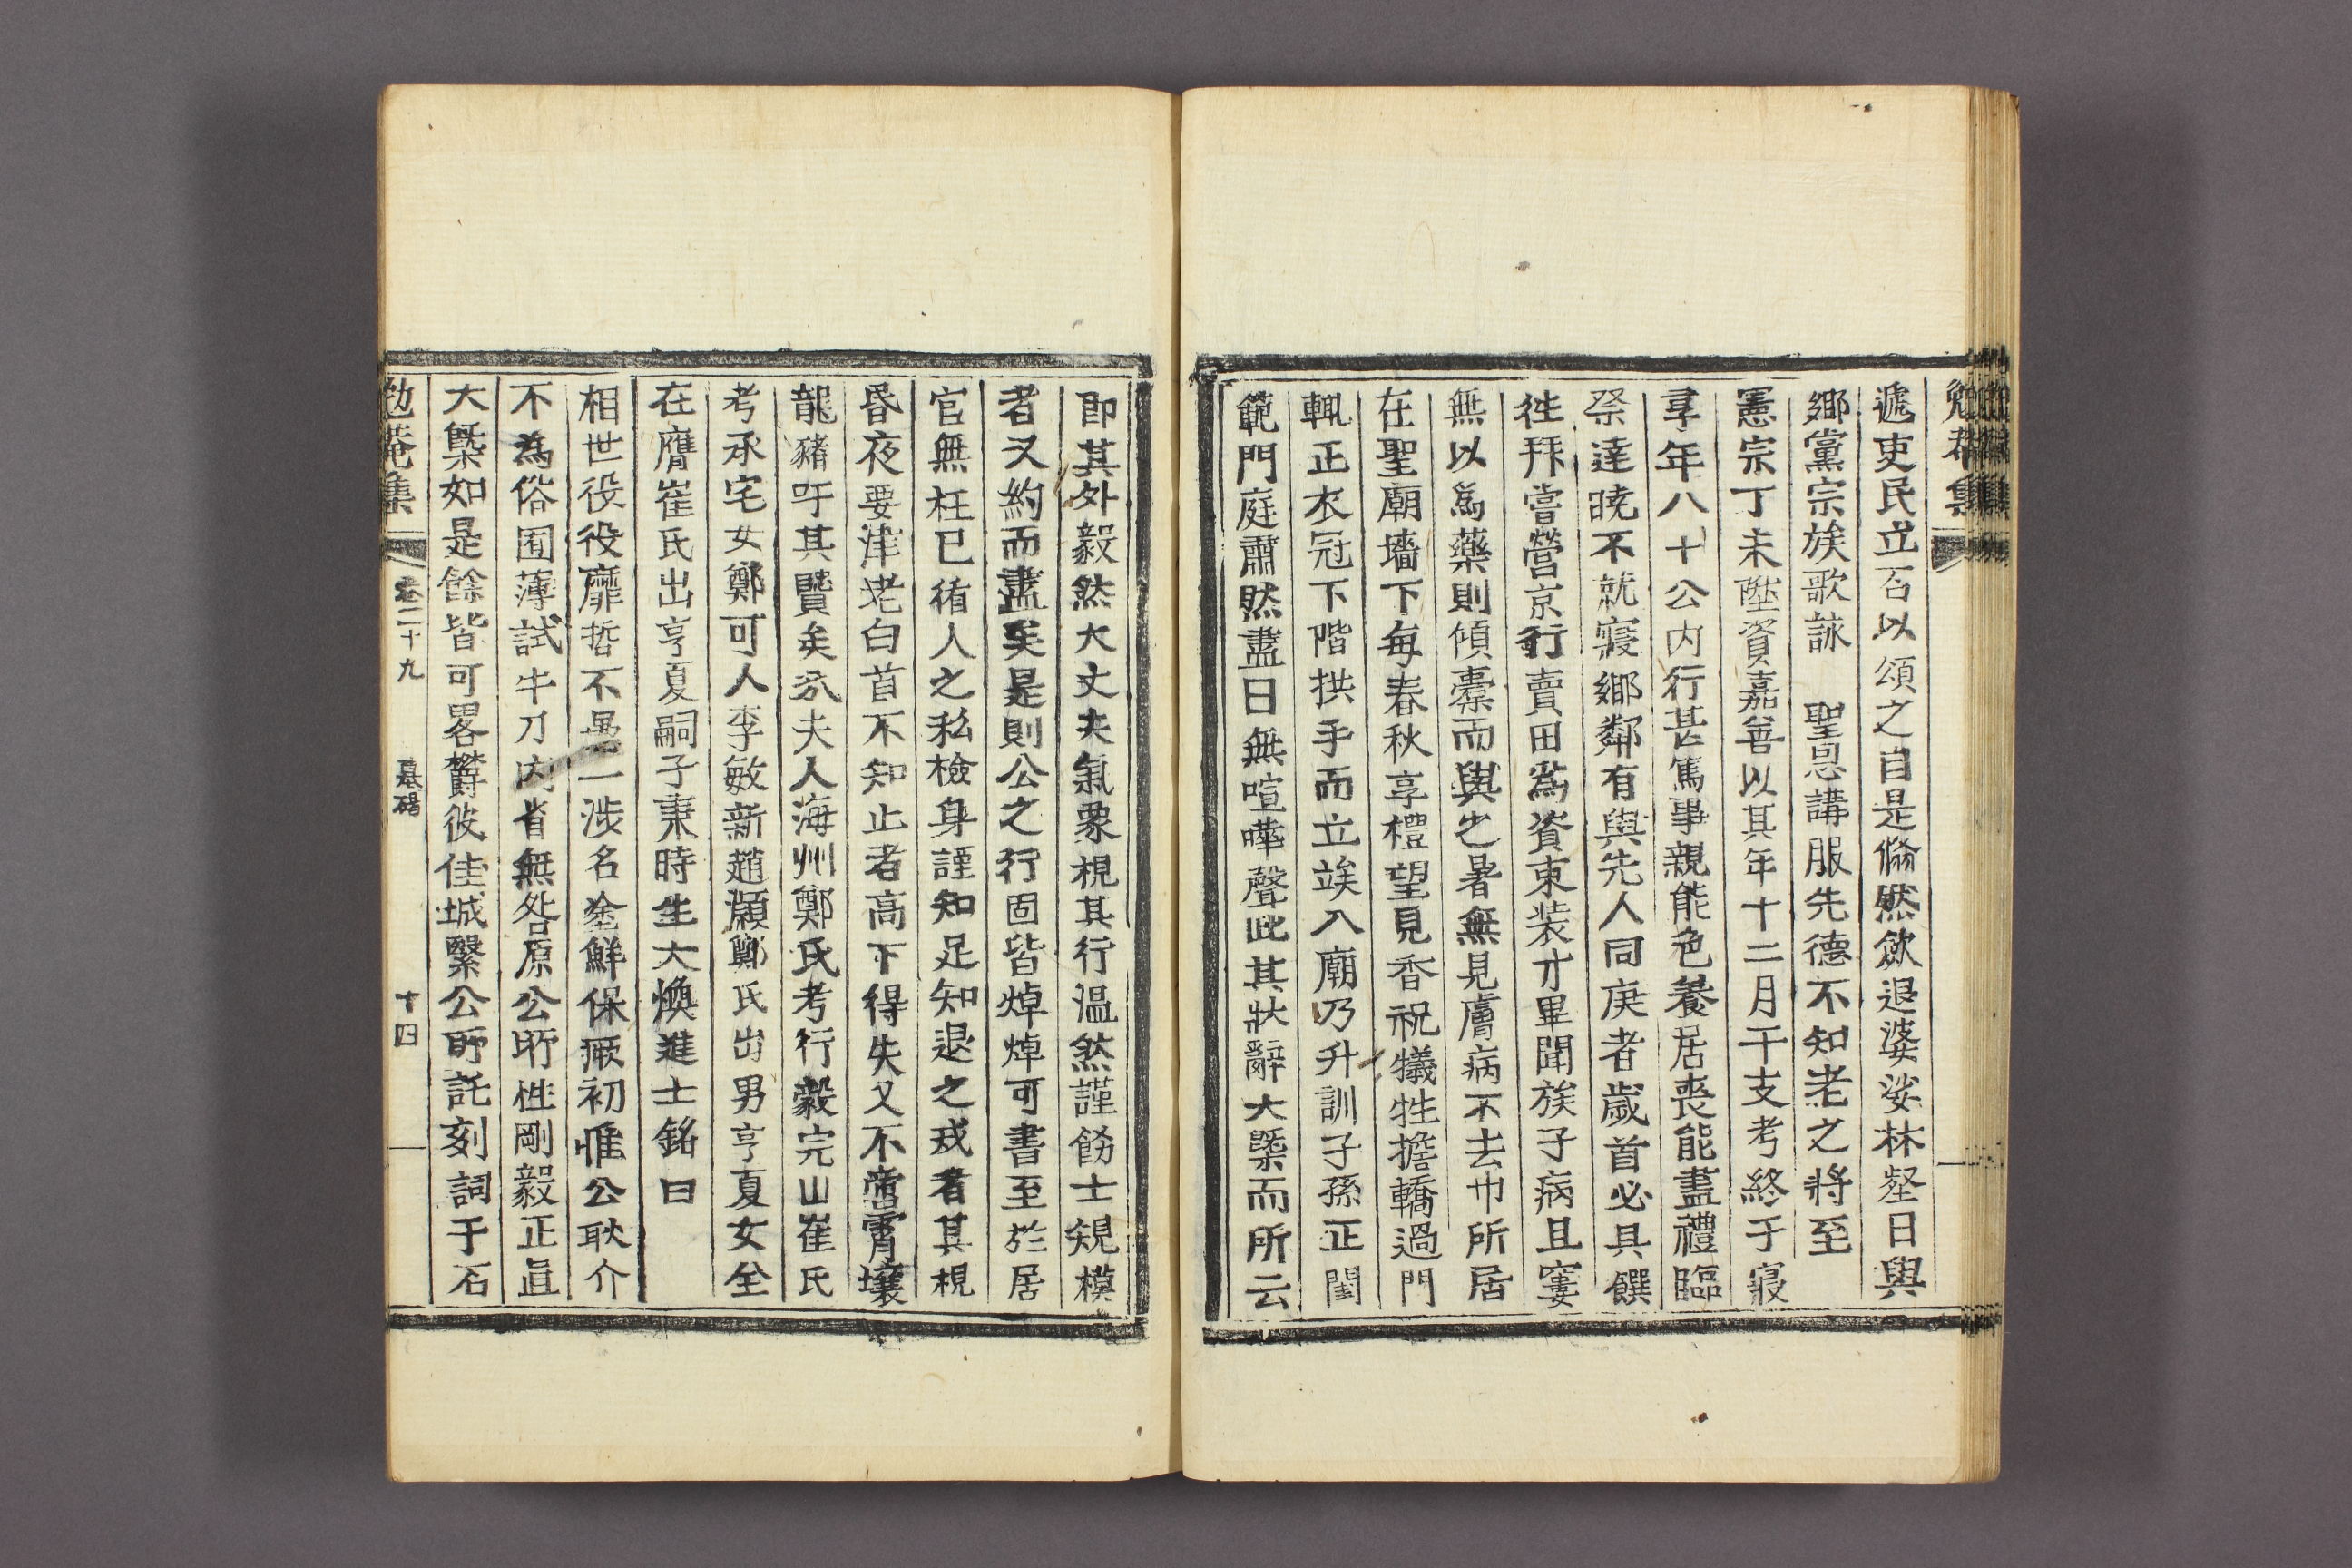 勉菴集
遞吏民立石以頌之自是翛然斂退婆娑林壑日與
鄕黨宗族歌詠 聖恩講服先德不知老之將至
憲宗丁未陞資嘉善以其年十二月干支考終于寢
享年八十公內行甚篤事親能色養居喪能盡禮臨
祭達曉不就寢鄕鄰有與先人同庚者歲首必具饌
徃拜嘗營京行賣田爲資束裝才畢聞族子病且窶
無以爲藥則傾橐而與之暑無見膚病不去巾所居
在聖廟墻下每春秋享禮望見香祝犧牲擔轎過門
輒正衣冠下階拱手而立竢入廟乃升訓子孫正閨
範門庭肅然盡日無喧嘩聲此其狀辭大槩而所云
卽其外毅然大丈夫氣象視其行溫然謹飭士規模
者又約而盡矣是則公之行固皆焯焯可書至於居
官無枉己循人之私檢身謹知足知退之戒者其視
昏夜要津老白首不知止者高下得失又不啻霄壤
龍豬吁其賢矣哉夫人海州鄭氏考行毅完山崔氏
考承宅女鄭可人李敏新趙灝鄭氏出男亨夏女全
在膺崔氏出亨夏嗣子秉時生大煥進士銘曰
相世役役靡哲不愚一涉名途鮮保厥初惟公耿介
不爲俗囿薄試牛刀內省無咎原公所性剛毅正直
大槩如是餘皆可畧欝彼佳城繄公所託刻詞于石
勉菴集 卷二十九 墓碣 十四